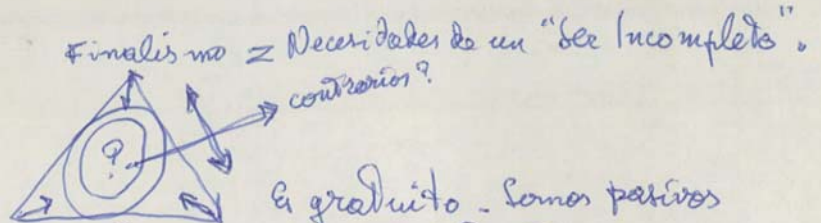 Finalismo = Necesidades de un "Ser Incompleto".
contrarios?
?
Es gratuito - Somos pasivos